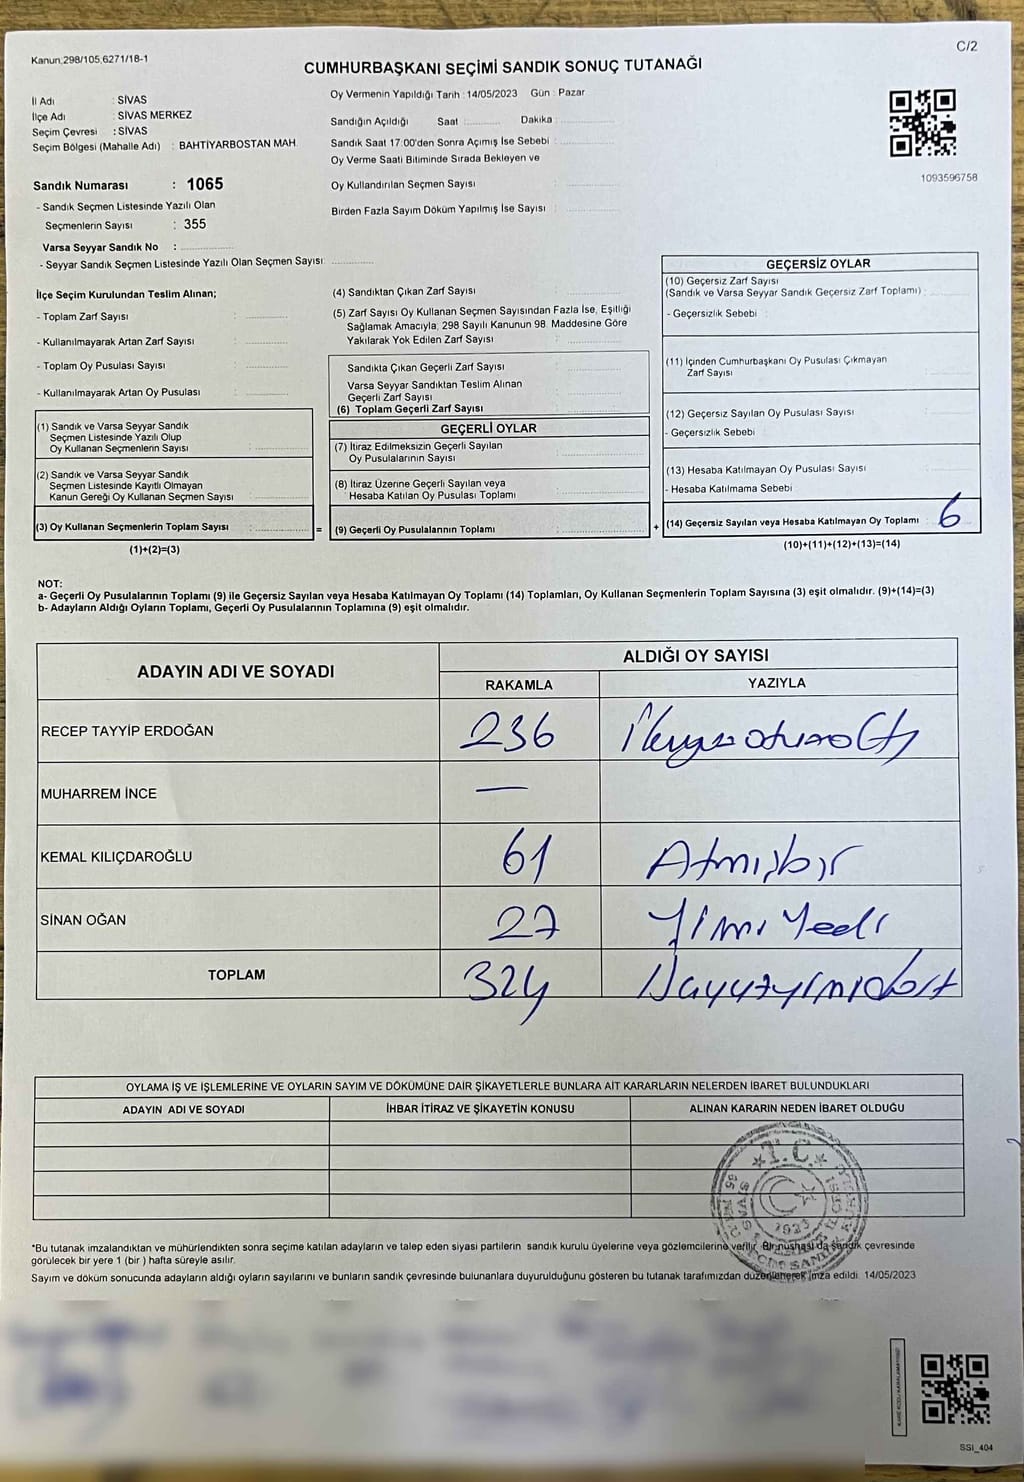 Kanun,298/105,6271/18-1
C/2
CUMHURBAŞKANI SEÇİMİ SANDIK SONUÇ TUTANAĞI
İl Adı : SİVAS
İlçe Adı : SİVAS MERKEZ
Seçim Çevresi : SİVAS
Seçim Bölgesi (Mahalle Adı) : BAHTİYARBOSTAN MAH.
Sandık Numarası : 1065
- Sandık Seçmen Listesinde Yazılı Olan
Seçmenlerin Sayısı : 355
Varsa Seyyar Sandık No :
- Seyyar Sandık Seçmen Listesinde Yazılı Olan Seçmen Sayısı:
Oy Vermenin Yapıldığı Tarih : 14/05/2023 Gün : Pazar
Sandığın Açıldığı Saat : Dakika :
Sandık Saat 17:00'den Sonra Açımış İse Sebebi :
Oy Verme Saati Bitiminde Sırada Bekleyen ve
Oy Kullandırılan Seçmen Sayısı :
Birden Fazla Sayım Döküm Yapılmış İse Sayısı :
1093596758
İlçe Seçim Kurulundan Teslim Alınan;
- Toplam Zarf Sayısı :
- Kullanılmayarak Artan Zarf Sayısı :
- Toplam Oy Pusulası Sayısı :
- Kullanılmayarak Artan Oy Pusulası :
(1) Sandık ve Varsa Seyyar Sandık
Seçmen Listesinde Yazılı Olup
Oy Kullanan Seçmenlerin Sayısı :
(2) Sandık ve Varsa Seyyar Sandık
Seçmen Listesinde Kayıtlı Olmayan
Kanun Gereği Oy Kullanan Seçmen Sayısı :
(3) Oy Kullanan Seçmenlerin Toplam Sayısı :
(1)+(2)=(3)
(4) Sandıktan Çıkan Zarf Sayısı :
(5) Zarf Sayısı Oy Kullanan Seçmen Sayısından Fazla İse, Eşitliği
Sağlamak Amacıyla; 298 Sayılı Kanunun 98. Maddesine Göre
Yakılarak Yok Edilen Zarf Sayısı :
Sandıkta Çıkan Geçerli Zarf Sayısı :
Varsa Seyyar Sandıktan Teslim Alınan
Geçerli Zarf Sayısı :
(6) Toplam Geçerli Zarf Sayısı :
GEÇERLİ OYLAR
(7) İtiraz Edilmeksizin Geçerli Sayılan
Oy Pusulalarının Sayısı :
(8) İtiraz Üzerine Geçerli Sayılan veya
Hesaba Katılan Oy Pusulası Toplamı :
= (9) Geçerli Oy Pusulalarının Toplamı :
GEÇERSİZ OYLAR
(10) Geçersiz Zarf Sayısı
(Sandık ve Varsa Seyyar Sandık Geçersiz Zarf Toplamı) :
- Geçersizlik Sebebi :
(11) İçinden Cumhurbaşkanı Oy Pusulası Çıkmayan
Zarf Sayısı :
(12) Geçersiz Sayılan Oy Pusulası Sayısı :
- Geçersizlik Sebebi :
(13) Hesaba Katılmayan Oy Pusulası Sayısı :
- Hesaba Katılmama Sebebi :
+ (14) Geçersiz Sayılan veya Hesaba Katılmayan Oy Toplamı : 6
(10)+(11)+(12)+(13)=(14)
NOT:
a- Geçerli Oy Pusulalarının Toplamı (9) ile Geçersiz Sayılan veya Hesaba Katılmayan Oy Toplamı (14) Toplamları, Oy Kullanan Seçmenlerin Toplam Sayısına (3) eşit olmalıdır. (9)+(14)=(3)
b- Adayların Aldığı Oyların Toplamı, Geçerli Oy Pusulalarının Toplamına (9) eşit olmalıdır.
ADAYIN ADI VE SOYADI
ALDIĞI OY SAYISI
RAKAMLA YAZIYLA
RECEP TAYYİP ERDOĞAN 236
MUHARREM İNCE —
KEMAL KILIÇDAROĞLU 61 Atmışbir
SİNAN OĞAN 27 Yirmi Yedi
TOPLAM 324
OYLAMA İŞ VE İŞLEMLERİNE VE OYLARIN SAYIM VE DÖKÜMÜNE DAİR ŞİKAYETLERLE BUNLARA AİT KARARLARIN NELERDEN İBARET BULUNDUKLARI
ADAYIN ADI VE SOYADI İHBAR İTİRAZ VE ŞİKAYETİN KONUSU ALINAN KARARIN NEDEN İBARET OLDUĞU
T.C.
1923
*Bu tutanak imzalandıktan ve mühürlendikten sonra seçime katılan adayların ve talep eden siyasi partilerin sandık kurulu üyelerine veya gözlemcilerine verilir. Bir nüshası da sandık çevresinde
görülecek bir yere 1 (bir ) hafta süreyle asılır.
Sayım ve döküm sonucunda adayların aldığı oyların sayılarını ve bunların sandık çevresinde bulunanlara duyurulduğunu gösteren bu tutanak tarafımızdan düzenlenerek imza edildi. 14/05/2023
SSI_404